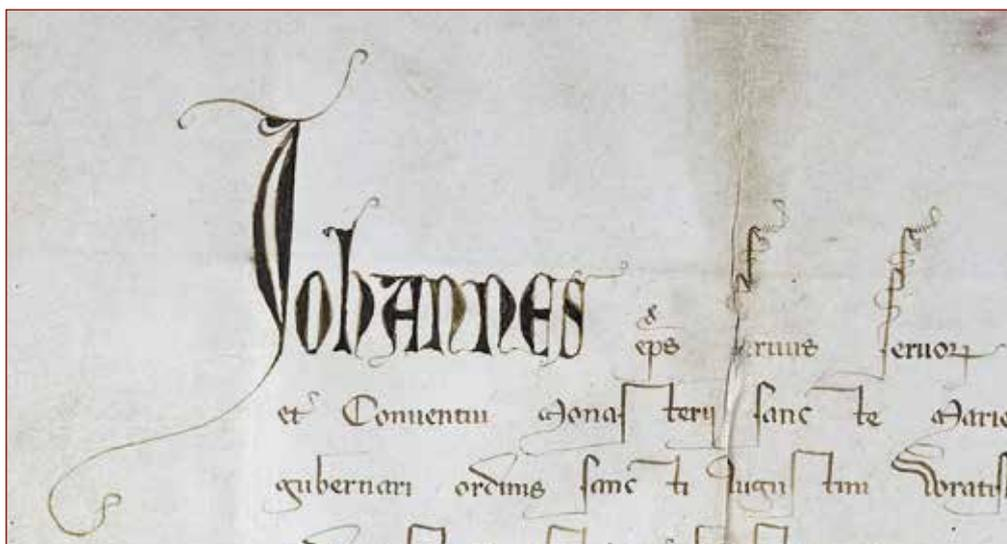 Johannes eps seruus seruoꝝ
et Conuentui Monasterij sancte Marie
gubernari ordinis sancti Augustini Wratis